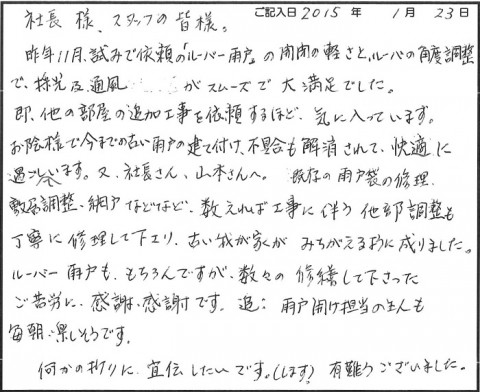 ご記入日 2015 年 1 月 23 日
社長様、スタッフの皆様。
昨年11月、試みで依頼の「ルーバー雨戸」の開閉の軽さと、ルーバーの角度調整
で、採光及通風 がスムーズで大満足でした。
即、他の部屋の追加工事を依頼するほど、気に入っています。
お陰様で今までの古い雨戸の建て付け、不具合も解消されて、快適に
過ごしています。又、社長さん、山本さんへ。既存の雨戸袋の修理、
調整、網戸などなど、数えれば工事に伴う他部調整も
丁寧に修理して下さり、古い我が家がみちがえるように成りました。
ルーバー雨戸も、もちろんですが、数々の修繕して下さった
ご苦労に、感謝、感謝です。追: 雨戸開け担当の主人も
毎朝楽しそうです。
何かの折りに、宣伝したいです。(します) 有難うございました。